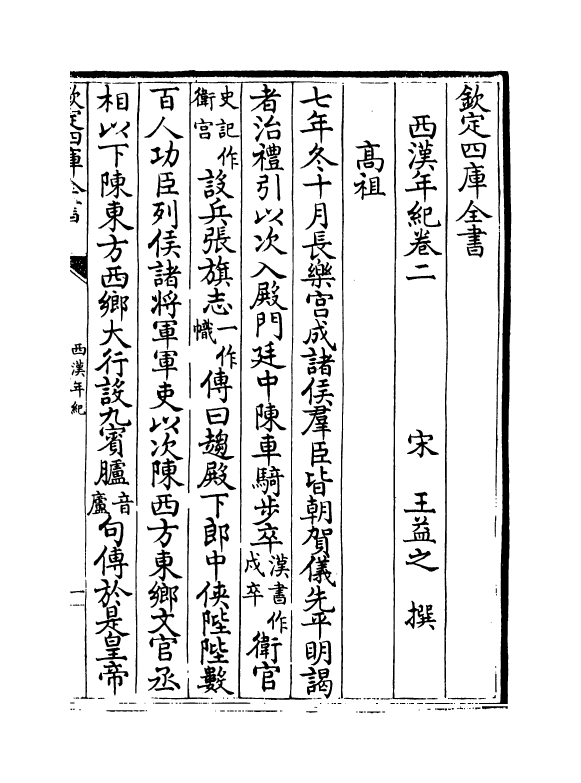 欽定四庫全書
西漢年紀卷二
宋 王益之 撰
高祖
七年冬十月長樂宮成諸侯羣臣皆朝賀儀先平明謁
者治禮引以次入殿門廷中陳車騎步卒漢書作戍卒衛官
史記作衛宮設兵張旗志一作幟傳曰趨殿下郎中俠陛陛數
百人功臣列侯諸將軍軍吏以次陳西方東鄉文官丞
相以下陳東方西鄉大行設九賓臚音廬句傳於是皇帝
欽定四庫全書
西漢年紀
一